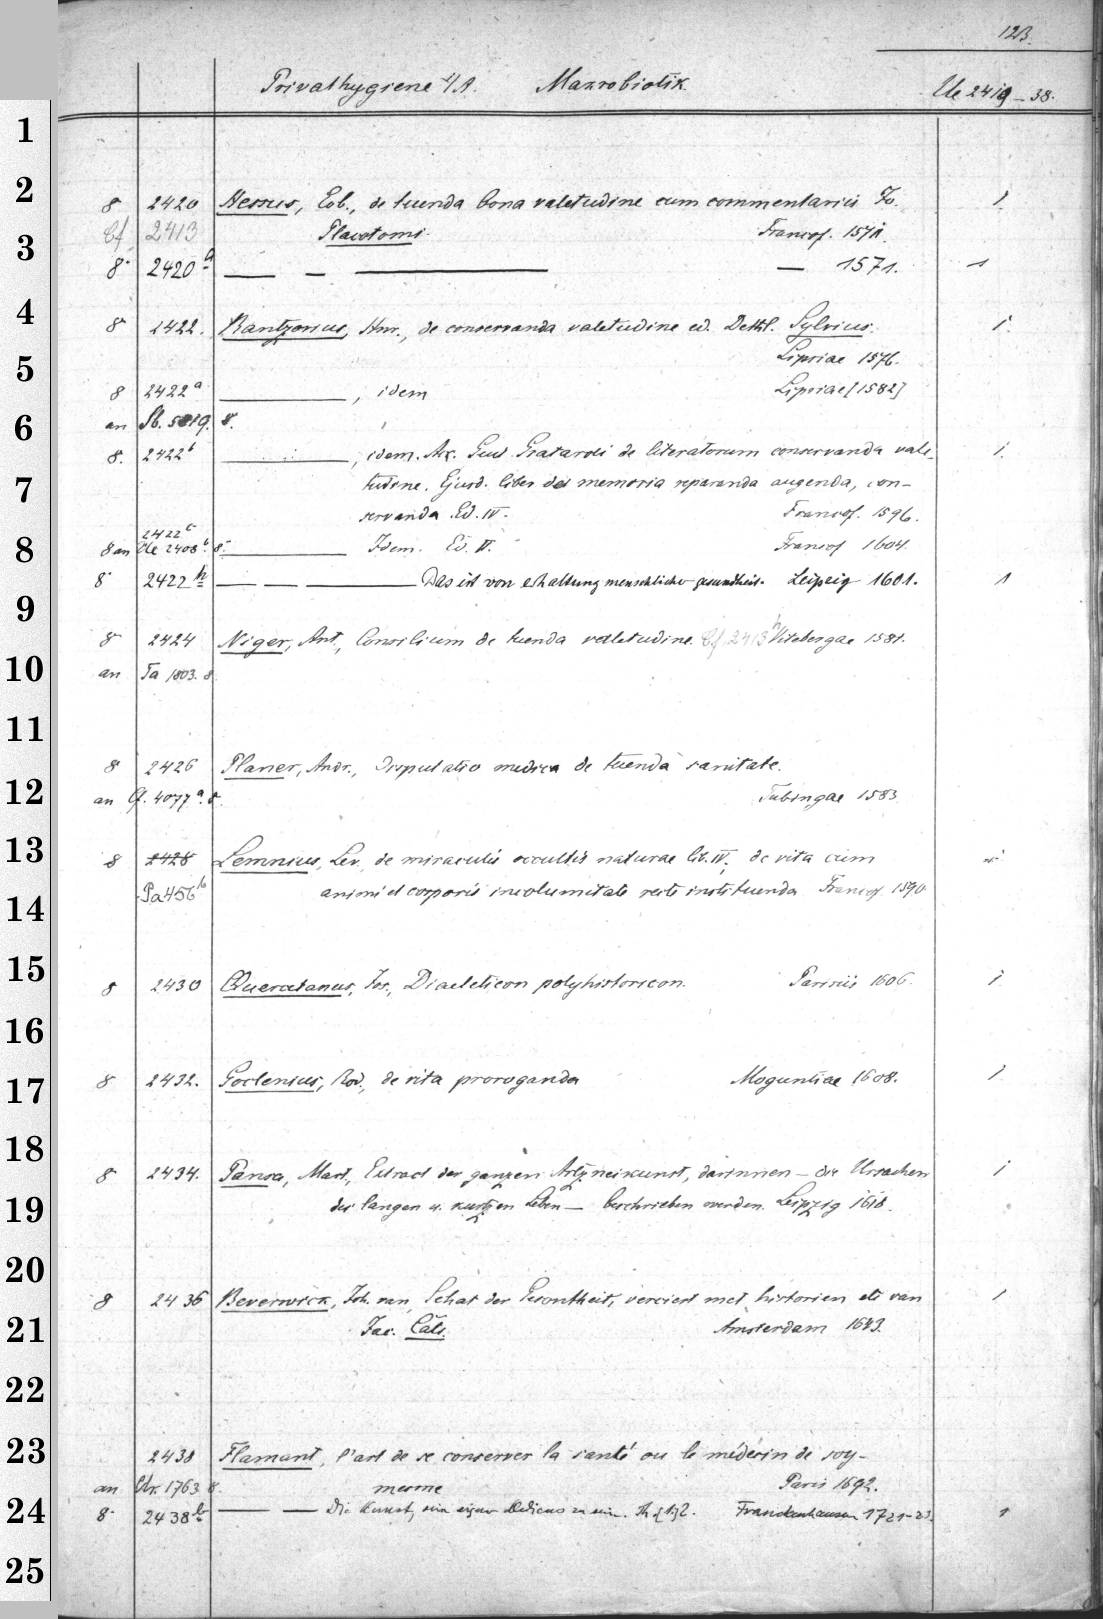 123.
Privathygiene 4/A. Makrobiotik. Ue 2419-38.
1
2
8 2420 Hessus, Eob., de tuenda bona valetudine cum commentariis Jo. 1
Cf 2413 Placotomi. Francof. 1571.
3
8° 2420 a — — — — 1571. 1
4
8 2422. Rantzovius, Henr., de conservanda valetudine ed. Dethl. Sylvius. 1
Lipsiae 1576.
5
8 2422 a —, idem Lipsiae [1582]
6
an Sb. 5819. 8.
8. 2422 b —, idem. Acc. Guil. Grataroli de literatorum conservanda vale- 1
7
tudine. Ejusd. liber de memoria reparanda augenda, con-
servanda Ed. IV. Francof. 1596.
2422 c
8
8 an Ue 2408 b. 8° — Idem. Ed. V. Francof 1604.
8° 2422 h — — — Das ist von erhaltung menschlicher gesundheit. Leipzig 1601. 1
9
8 2424 Niger, Ant., Consilium de tuenda valetudine. Cf 2413 h Vitebergae 1581.
10
an Ta 1803. 8
11
8 2426 Planer, Andr., Disputatio medica de tuenda sanitate.
12
an 4077 a. 8. Tubingae 1583
13
8 2428 Lemnius, Lev., de miraculis occultis naturae lib. IV; de vita cum
Pa 456 b animi et corporis incolumitate recte instituenda Francof 1590
14
15
8 2430 Quercetanus, Jos., Diaeteticon polyhistoricon. Parisiis 1606. 1
16
17
8 2432. Goclenius, Rod., de vita proroganda Moguntiae 1608. 1
18
8 2434. Pansa, Mart., Extract der ganzen Artzneikunst, darinnen — die Ursachen 1
19
des langen u. kurtzen Leben — beschrieben werden. Leipzig 1618.
20
8 2436 Beverwick, Joh. van, Schat der Gesontheit, verciert met historien etc van 1
21
Jac. Cats. Amsterdam 1643.
22
23
2438 Flamant, l'art de se conserver la santé ou le médecin de soy-
an 1763 8. mesme Paris 1692.
24
8° 2438 b — — Die Kunst, sein eigner Medicus zu sein. Th. 1, 2. Franckenhausen 1721-23. 1
25